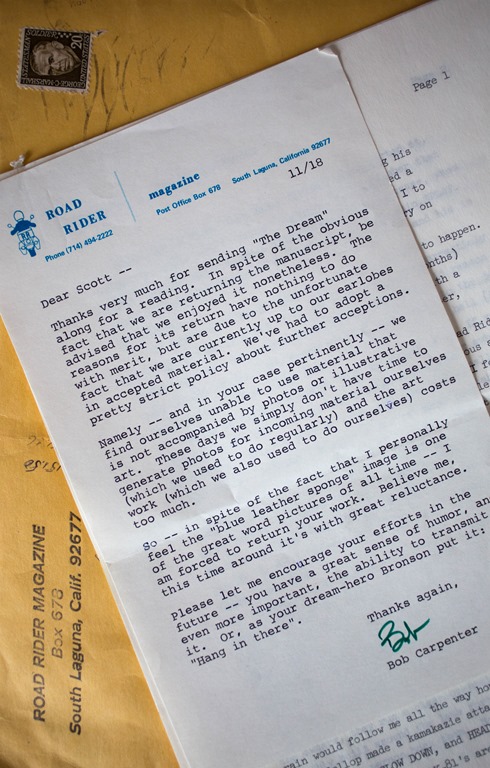 20c
Page 1
ROAD
RIDER
magazine
Post Office Box 678 South Laguna, California 92677
Phone (714) 494-2222
11/18
Dear Scott --
Thanks very much for sending "The Dream"
along for a reading. In spite of the obvious
fact that we are returning the manuscript, be
advised that we enjoyed it nonetheless. The
reasons for its return have nothing to do
with merit, but are due to the unfortunate
fact that we are currently up to our earlobes
in accepted material. We've had to adopt a
pretty strict policy about further acceptions.
Namely -- and in your case pertinently -- we
find ourselves unable to use material that
is not accompanied by photos or illustrative
art. These days we simply don't have time to
generate photos for incoming material ourselves
(which we used to do regularly) and the art
work (which we also used to do ourselves) costs
too much.
So -- in spite of the fact that I personally
feel the "blue leather sponge" image is one
of the great word pictures of all time -- I
am forced to return your work. Believe me,
this time around it's with great reluctance.
Please let me encourage your efforts in the
future -- you have a great sense of humor, and
even more important, the ability to transmit
it. Or, as your dream-hero Bronson put it:
"Hang in there".
Thanks again,
Bob
Bob Carpenter
his
a
I to
on
to happen.
a
ROAD RIDER MAGAZINE
Box 678
South Laguna, Calif. 92677
would follow me all the way
made a kamakazie
DOWN, and
are